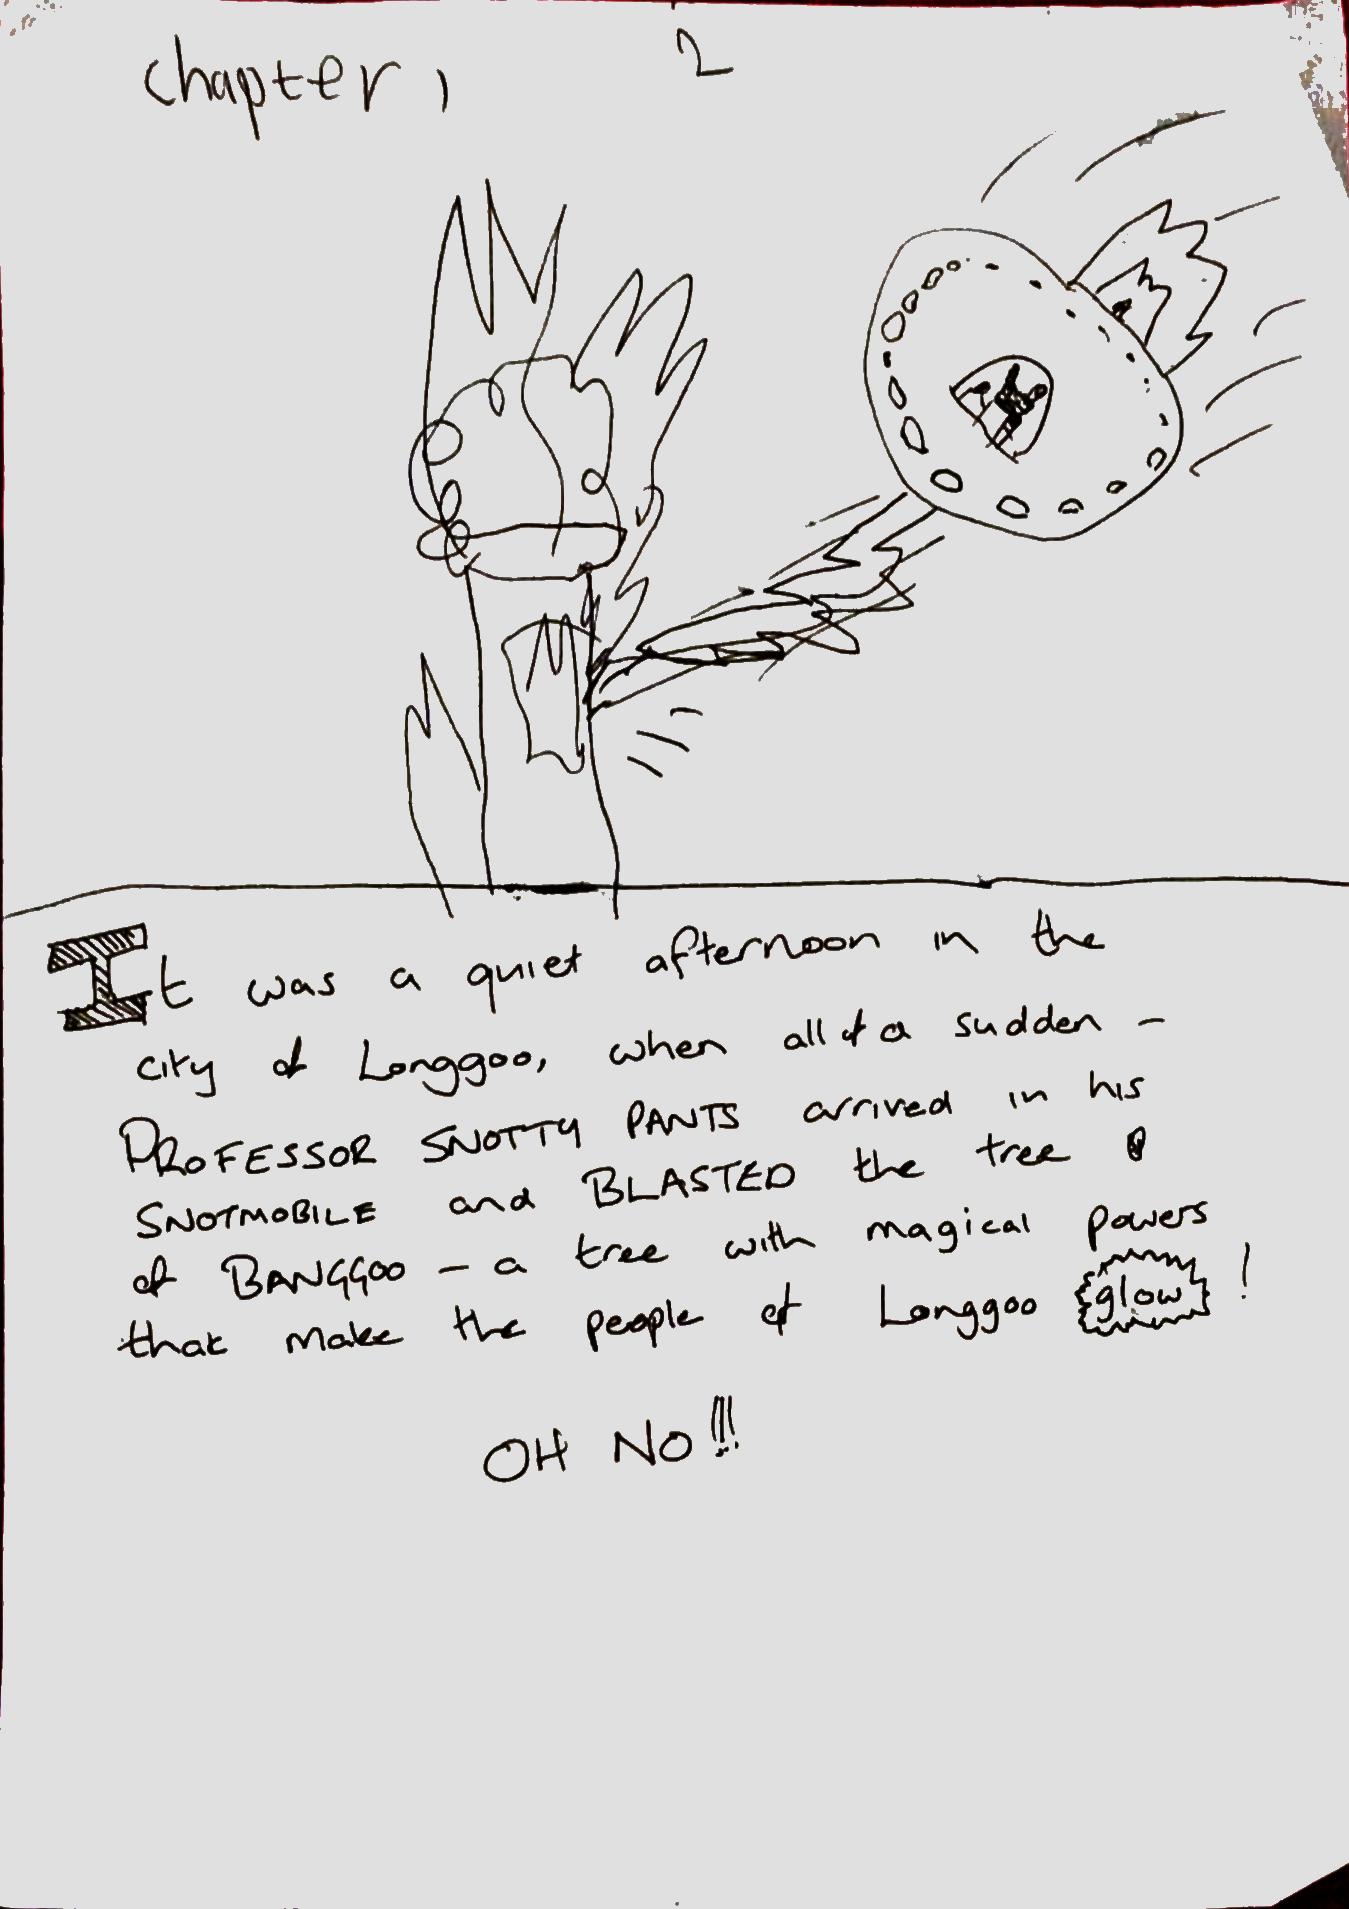 chapter 1
2
It was a quiet afternoon in the
city of Longgoo, when all of a sudden –
PROFESSOR SNOTTY PANTS arrived in his
SNOTMOBILE and BLASTED the tree
of BANGGOO – a tree with magical powers
that make the people of Longgoo glow!
OH NO!!!